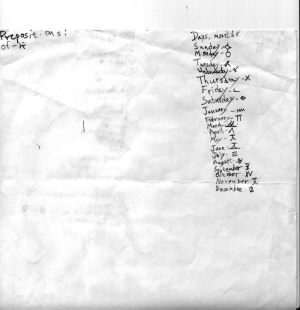 Prepositions:
of -
Days, months
Sunday -
Monday -
Tuesday -
Wednesday -
Thursday - X
Friday -
Saturday -
January -
February -
March
April -
May -
June -
July -
August -
September
October
November
December